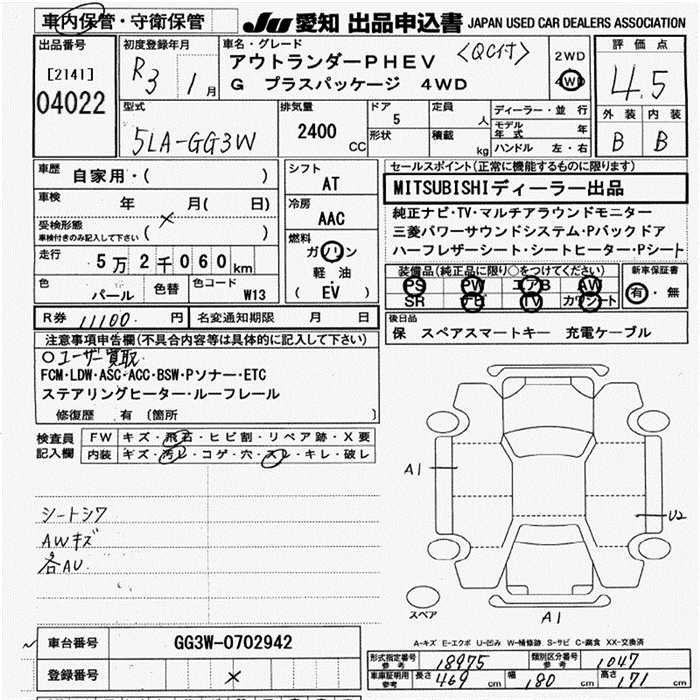 車内保管・守衛保管
JU 愛知 出品申込書 JAPAN USED CAR DEALERS ASSOCIATION
出品番号
[2141]
04022
初度登録年月
R3 1月
車名・グレード
〈QC付〉
アウトランダーPHEV
G プラスパッケージ 4WD
2WD
4WD
評価点
4.5
外装 内装
B B
型式
5LA-GG3W
排気量
2400
CC
ドア
5
形状
定員
人
積載
kg
ディーラー・並行
モデル年式 年
ハンドル 左・右
車歴
自家用・( )
車検
年 月( 日)
受検形態
車検付きのみ記入して下さい ( × )
走行
5万2千060km
色
パール
色替
色コード
W13
シフト
AT
冷房
AAC
燃料
ガソリン
軽油
( EV )
R券 11100 円
名変通知期限 月 日
セールスポイント(正常に機能するものに限ります)
MITSUBISHIディーラー出品
純正ナビ・TV・マルチアラウンドモニター
三菱パワーサウンドシステム・Pバックドア
ハーフレザーシート・シートヒーター・Pシート
装備品(純正品に限り○をつけてください)
PS PW エアB AW
SR ナビ TV カワシート
新車保証書
有・無
後日品
保 スペアスマートキー 充電ケーブル
注意事項申告欄(不具合内容等は具体的に記入して下さい)
○ユーザー買取
FCM・LDW・ASC・ACC・BSW・Pソナー・ETC
ステアリングヒーター・ルーフレール
修復歴 有 〔箇所 〕
検査員記入欄
FW キズ・飛石・ヒビ割・リペア跡・X要
内装 キズ・汚レ・コゲ・穴・スレ・キレ・破レ
シートシワ
AWキズ
各AU
A1
U2
A1
スペア
A-キズ E-エクボ U-凹み W-補修跡 S-サビ C-腐食 XX-交換済
車台番号 GG3W-0702942
登録番号 ×
形式指定番号 参考 18975
類別区分番号 参考 1047
車庫証明用参考 長さ 469 cm 幅 180 cm 高さ 171 cm